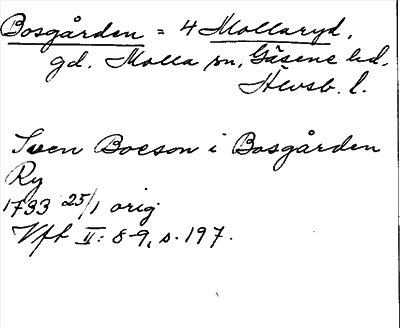 Bosgården = 4 Mollaryd,
gd. Molla sn, Gäsene hd.
Älvsb. l.
Sven Boeson i Bosgården
Ry
1733 25/1 orig
Vfb II: 8-9, s. 197.